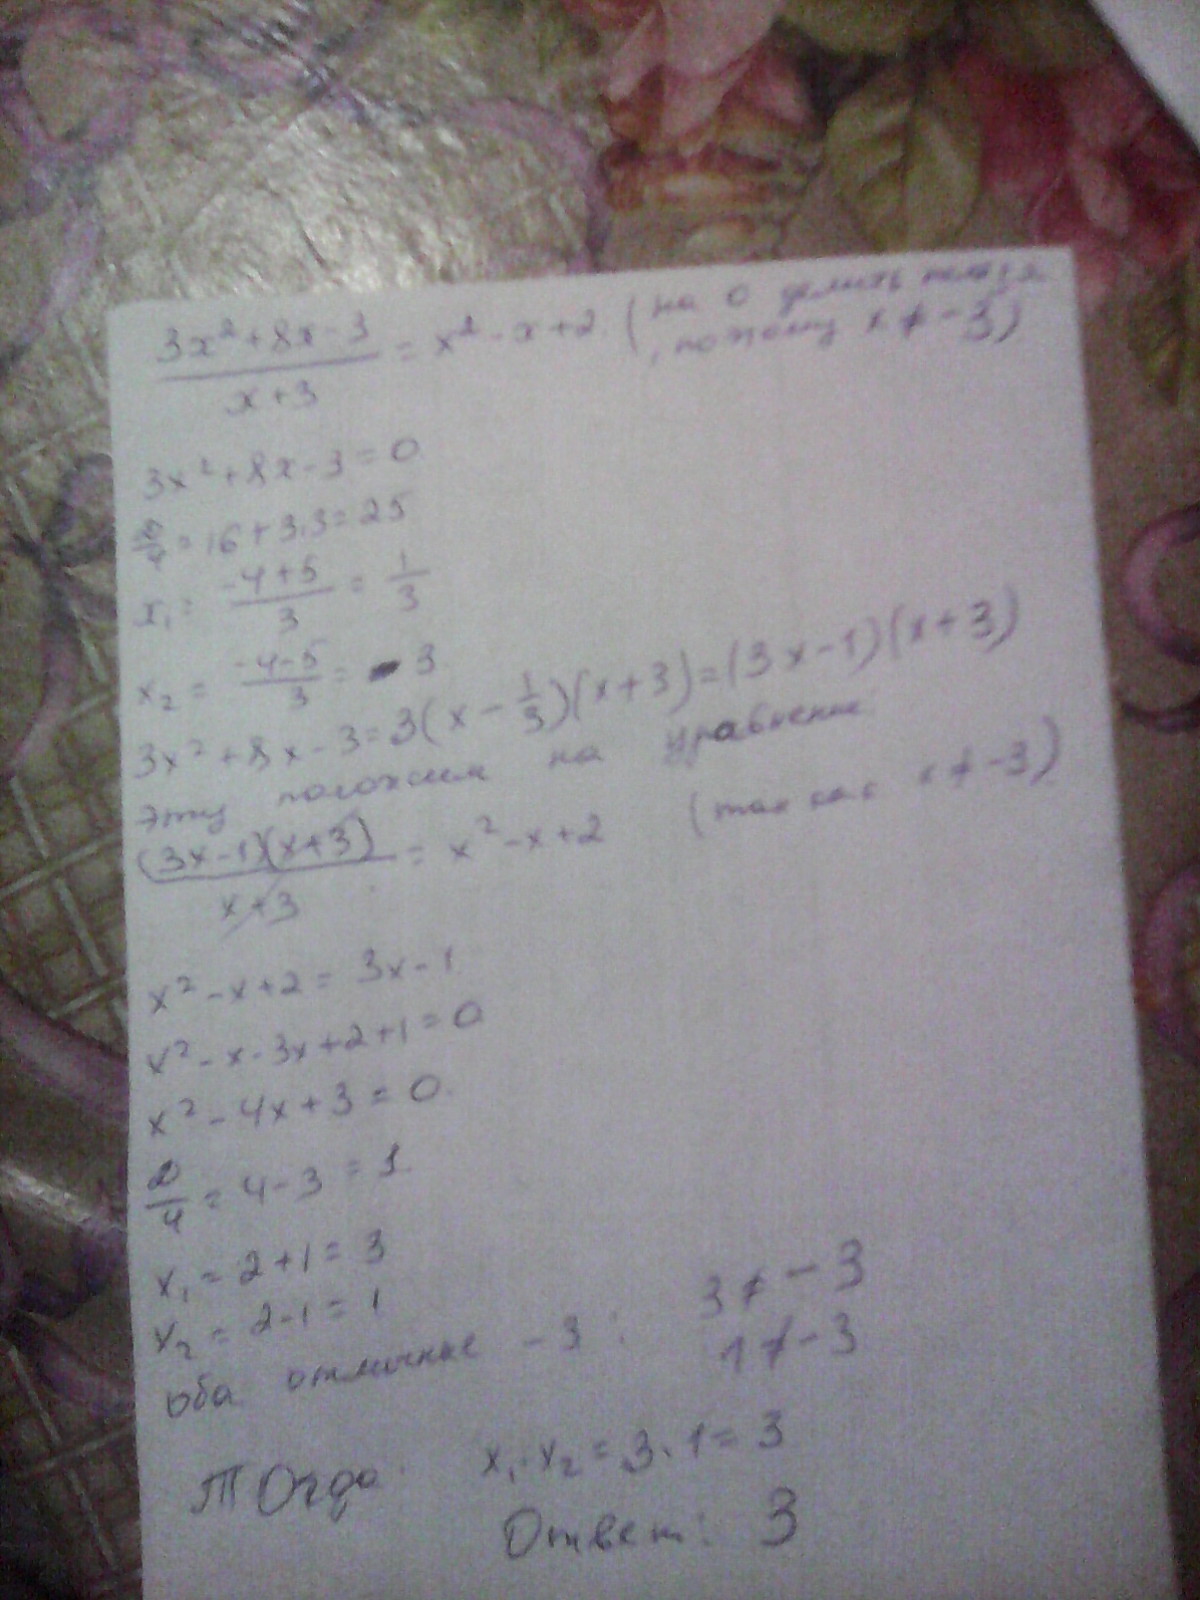 (3x²+8x-3)/(x+3) = x²-x+2. (на 0 делить нельзя, поэтому x≠-3)
3x²+8x-3=0
D/4=16+3·3=25
x₁= (-4+5)/3 = 1/3
x₂= (-4-5)/3 = -3
3x²+8x-3=3(x-1/3)(x+3)=(3x-1)(x+3)
Эту положим на уравнение
(3x-1)(x+3)/(x+3) = x²-x+2 (так как x≠-3)
x²-x+2=3x-1
x²-x-3x+2+1=0
x²-4x+3=0.
D/4=4-3=1.
x₁=2+1=3
x₂=2-1=1
Оба отличные -3: 3≠-3
1≠-3
ТОгда x₁·x₂=3·1=3
Ответ: 3